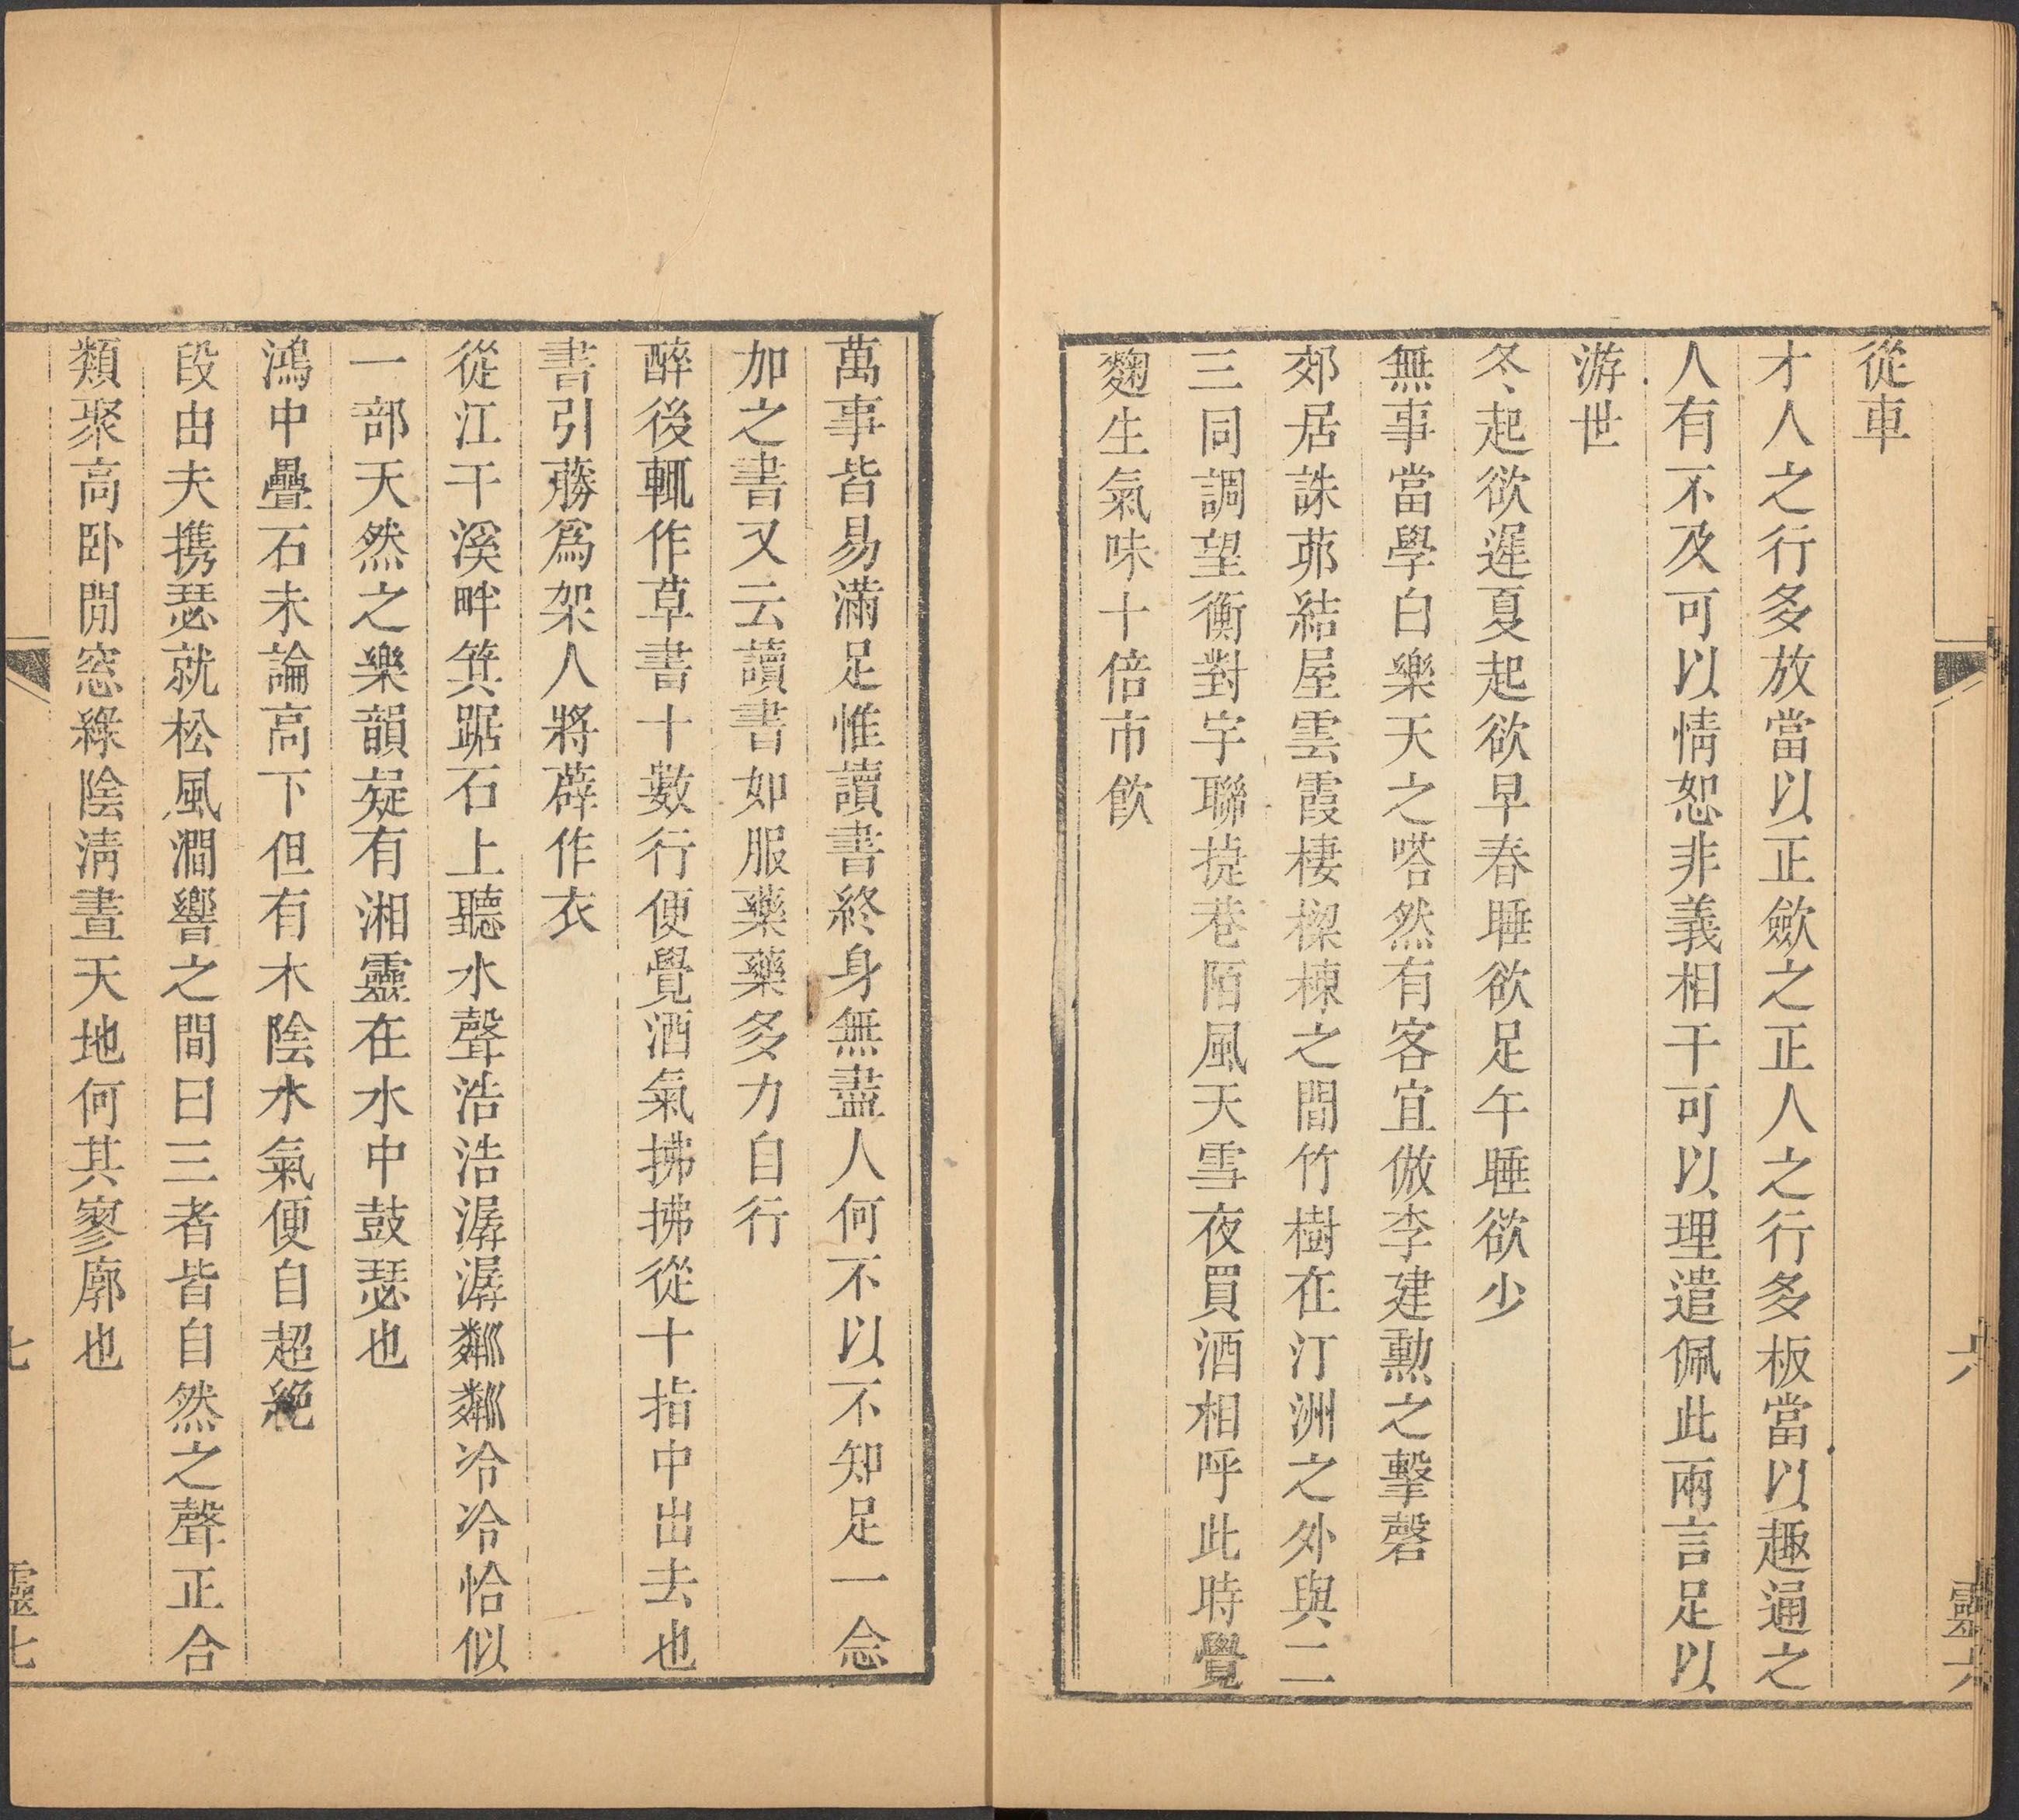 從車
才人之行多放當以正歛之正人之行多板當以趣通之
人有不及可以情恕非義相干可以理遣佩此兩言足以
游世
冬起欲遲夏起欲早春睡欲足午睡欲少
無事當學白樂天之嗒然有客宜倣李建勳之擊磬
郊居誅茆結屋雲霞棲樑棟之間竹樹在汀洲之外與二
三同調望衡對宇聯接巷陌風天雪夜買酒相呼此時覺
麴生氣味十倍市飲
六
靈六
萬事皆易滿足惟讀書終身無盡人何不以不知足一念
加之書又云讀書如服藥藥多力自行
醉後輒作草書十數行便覺酒氣拂拂從十指中出去也
書引藤爲架人將薜作衣
從江干溪畔箕踞石上聽水聲浩浩潺潺粼粼冷冷恰似
一部天然之樂韻疑有湘靈在水中鼓瑟也
鴻中疊石未論高下但有木陰水氣便自超絶
段由夫携瑟就松風澗響之間曰三者皆自然之聲正合
類聚高卧閒窓綠陰淸晝天地何其寥廓也
七
靈七